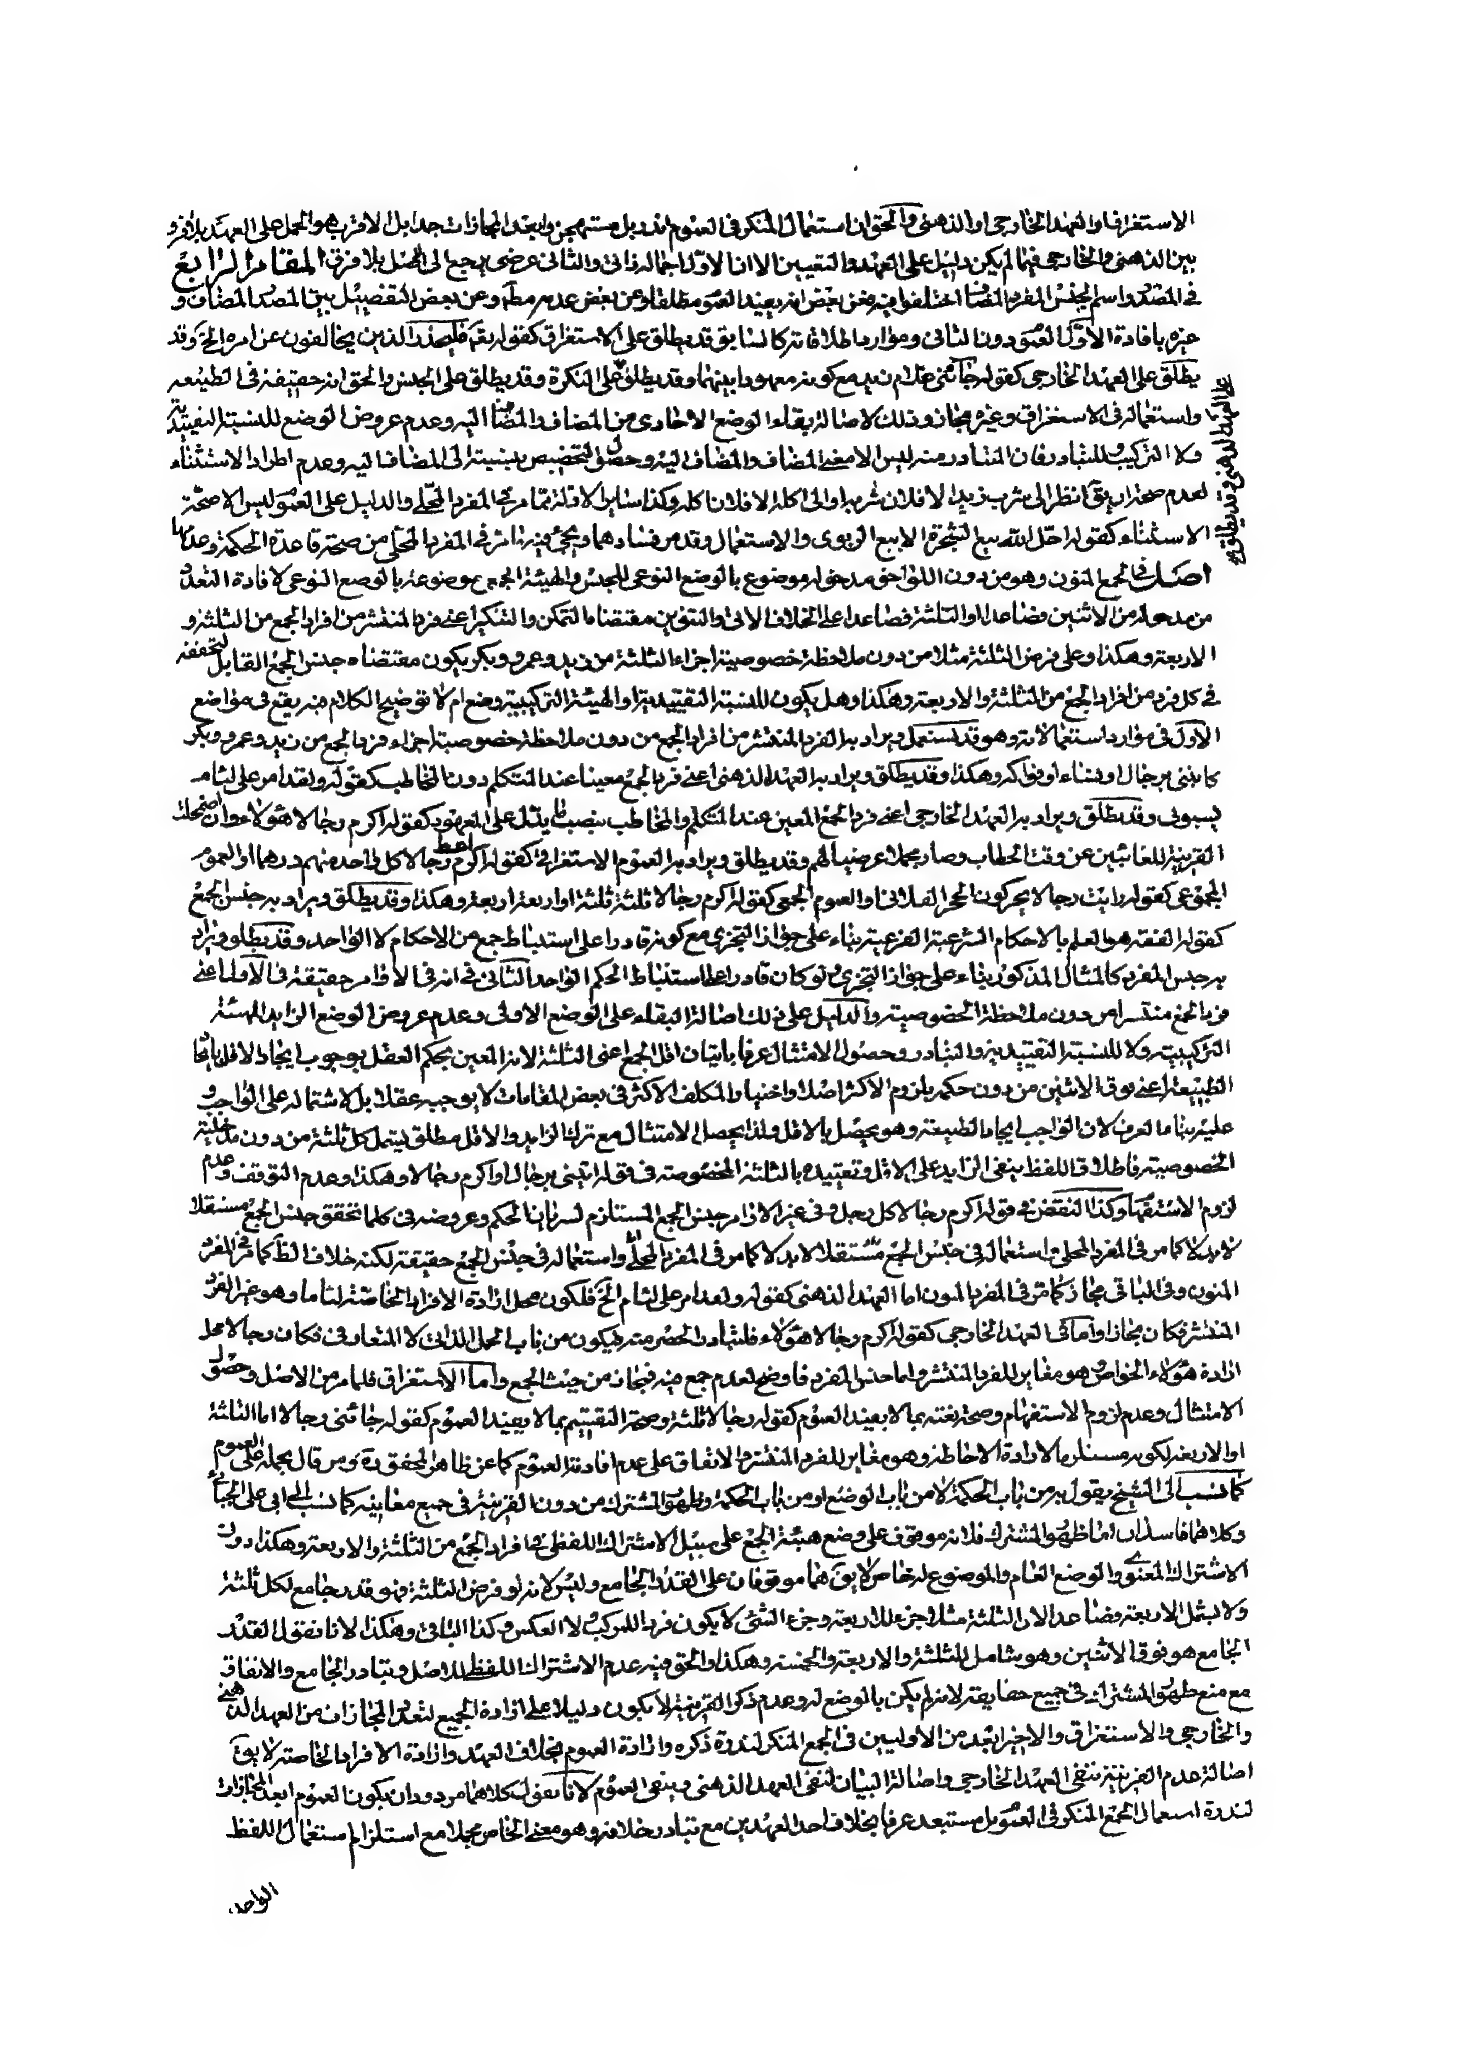 الاستغراق او العهد الخارجى او الذهنى والحق ان استعمال المنكر فى العموم اندر بل مستهجن وابعد المجازات جدا بل الاقرب هو الحمل على العهد بلا فرق
بين الذهنى والخارجى فيما لم يكن دليل على العهد والتعيين الا ان الاول اجماله ذاتى والثانى عرضى يرجع الى الاصل بلا فرق المقام الرابع
فى المصدر واسم الجنس المفرد المضاف اختلفوا فيه فعن بعض انه يفيد العموم مطلقا وعن بعض عدمه مطلقا وعن بعض التفصيل بين المصدر المضاف و
غيره بافادة الاول العموم دون الثانى وموارد اطلاقاته كالسابق قد يطلق على الاستغراق كقوله تعالى فليحذر الذين يخالفون عن امره الخ وقد
يطلق على العهد الخارجى كقوله جائنى غلام زيد مع كونه معهودا بينهما وقد يطلق على النكرة وقد يطلق على الجنس والحق انه حقيقة فى الطبيعة
واستعماله فى الاستغراق وغيره مجاز وذلك لاصالة بقاء الوضع الاحادى من المضاف والمضاف اليه وعدم عروض الوضع للنسبة التقييدية
ولا التركيب وللتبادر فان المتبادر منه ليس الا معنى المضاف والمضاف اليه وحصول التخصيص بنسبته الى المضاف اليه وعدم اطراد الاستثناء
لعدم صحة ان يق انظر الى شرب زيد الا فلان شربه والى اكله الا فلان اكله وكذا ساير الادلة تمامه فى المفرد المحلى والدليل على العموم ليس الا صحة
الاستثناء كقوله احل الله بيع الشجرة الا بيع الربوى والاستعمال وقد مر فسادهما ويجئ فيه ما مر فى المفرد المحلى من صحة قاعدة الحكمة وعدمها
اصل فى الجمع المنون وهو من دون اللواحق مدخوله موضوع بالوضع النوعى للجنس والهيئة الجمع موضوعة بالوضع النوعى لافادة التعدد
من مدخوله من الاثنين فصاعدا او الثلثة فصاعدا على الخلاف الاتى والتنوين مقتضاه التمكن والتنكير اعنى فرد المنتشر من افراد الجمع من الثلثة و
الاربعة وهكذا وعلى فرض الثلثة مثلا من دون ملاحظة خصوصية اجزاء الثلثة من زيد وعمرو وبكر يكون مقتضاه جنس الجمع القابل لتحققه
فى كل فرد من افراد الجمع من الثلثة والاربعة وهكذا وهل يكون للنسبة التقييدية او الهيئة التركيبية وضع ام لا توضيح الكلام فيه يقع فى مواضع
الاول فى موارد استعمالاته وهو قد يستعمل ويراد به الفرد المنتشر من افراد الجمع من دون ملاحظة خصوصية اجزاء فرد الجمع من زيد وعمرو وبكر
كايتنى برجال او بنساء او بفواكه وهكذا وقد يطلق ويراد به العهد الذهنى اعنى فرد الجمع معينا عند المتكلم دون المخاطب كقوله ولقد امر على لئام
يسبونى وقد يطلق ويراد به العهد الخارجى اعنى فرد الجمع المعين عند المتكلم والمخاطب بنصب ما يدل على المعهود كقوله اكرم رجالا هؤلاء وان اضمحلت
القرينة للغائبين عن وقت الخطاب وصار مجملا عرضيا لهم وقد يطلق ويراد به العموم الاستغراقى كقوله اكرم اعط رجالا كل واحد منهم درهما او العموم
المجموعى كقوله رايت رجالا يحركون الحجر الفلانى او العموم الجمعى كقوله اكرم رجالا ثلثة ثلثة او اربعة اربعة وهكذا وقد يطلق ويراد به جنس الجمع
كقوله الفقه هو العلم بالاحكام الشرعية الفرعية بناء على جواز التجزى مع كونه قادرا على استنباط جمع من الاحكام لا الواحد وقد يطلق ويراد
به جنس المفرد كالمثال المذكور بناء على جواز التجزى ولو كان قادرا على استنباط الحكم الواحد الثانى فى انه فى الافراد حقيقة فى الاول اعنى
فرد الجمع منتشرا من دون ملاحظة الخصوصية والدليل على ذلك اصالة البقاء على الوضع الاولى وعدم عروض الوضع الزايد للهيئة
التركيبية ولا للنسبة التقييدية والتبادر وحصول الامتثال عرفا باتيان اقل الجمع اعنى الثلثة لانه المعين بحكم العقل بوجوب ايجاد الاقل بايجاد
الطبيعة اعنى فوق الاثنين من دون حكمه بلزوم الاكثر اصلا واختيار المكلف الاكثر فى بعض المقامات لا يوجبه عقلا بل لاشتماله على الواجب و
عليه بناء العرف لان الواجب ايجاد الطبيعة وهو يحصل بالاقل ولذا يحصل الامتثال مع ترك الزايد والاقل مطلق يشمل كل ثلثة من دون مدخلية
الخصوصية فاطلاق اللفظ ينفى الزايد على الاقل وتقييده بالثلثة المخصوصة فى قوله ايتنى برجال او اكرم رجالا وهكذا وعدم التوقف وعدم
لزوم الاستفهام وكذا النقض فى قوله اكرم رجالا كل رجل وفى غير الافراد جنس الجمع المستلزم لسريان الحكم وعروضه فى كلما تحقق جنس الجمع مستقلا
لا بدلا كما مر فى المفرد المحلى واستعماله فى جنس الجمع مستقلا لا بدلا كما مر فى المفرد المحلى واستعماله فى جنس الجمع حقيقة لكنه خلاف الظ كما مر فى المفرد
المنون وفى الباقى مجاز كما مر فى المفرد المنون اما العهد الذهنى كقوله ولقد امر على لئام الخ فلكون محل ارادة الافراد الخاصة لئاما وهو غير الفرد
المنتشر فكان مجازا واما فى العهد الخارجى كقوله اكرم رجالا هؤلاء فلتبادر الحصر منه فيكون من باب الحمل الذاتى لا المتعارف فكان رجالا محل
ارادة هؤلاء الخواص وهو مغاير للفرد المنتشر واما جنس المفرد فاوضح لعدم جمع فيه فمجاز من حيث الجمع واما الاستغراق فلما مر من الاصل وحصول
الامتثال وعدم لزوم الاستفهام وصحة نعته بما لا يفيد العموم كقوله رجالا ثلثة وصحة التقسيم بما لا يفيد العموم كقوله جائنى رجالا اما الثلثة
او الاربعة لكونه مستلزما لارادة الاحاطة وهو مغاير للفرد المنتشر والاتفاق على عدم افادته العموم كما عن ظاهر المحقق ره ومن قال بحمله على العموم
كما نسب الى الشيخ يقول به من باب الحكمة لا من باب الوضع او من باب الحكمة وظهور المشترك من دون القرينة فى جميع معانيه كما نسب الى ابى على الجبائى
وكلاهما فاسدان اما ظهور المشترك فلانه موقوف على وضع هيئة الجمع على سبيل الاشتراك اللفظى فى افراد الجمع من الثلثة والاربعة وهكذا دون
الاشتراك المعنوى والوضع العام والموضوع له خاص لا يق هما موقوفان على القدر الجامع وليس لانه لو فرض الثلثة فهو قدر جامع لكل ثلثة
ولا يشمل الاربعة فصاعدا لان الثلثة مثلا جزء للاربعة وجزء الشئ لا يكون فردا للمركب ولا العكس وكذا الباقى وهكذا لانا نقول القدر
الجامع هو فوق الاثنين وهو شامل للثلثة والاربعة والخمسة وهكذا والحق فيه عدم الاشتراك اللفظى للاصل وتبادر الجامع والاتفاق
مع منع ظهور المشترك فى جميع حقايقه لانه لم يكن بالوضع له وعدم ذكر القرينة لا يكون دليلا على ارادة الجميع لتعدد المجازات من العهد الذهنى
والخارجى والاستغراق والاخير ابعد من الاوليين فى الجمع المنكر لندرة ذكره وارادة العموم بخلاف العهد وارادة الافراد الخاصة لا يق
اصالة عدم القرينة تنفى العهد الخارجى واصالة البيان تنفى العهد الذهنى ويبقى العموم لانا نقول كلاهما مردودان بكون العموم ابعد المجازات
لندرة استعمال الجمع المنكر فى العموم بل مستبعد عرفا بخلاف احد العهدين مع تبادر خلافه وهو معنى الخاص مجملا مع استلزام استعمال اللفظ
الواحد
على العهد الذهنى وقد يطلق